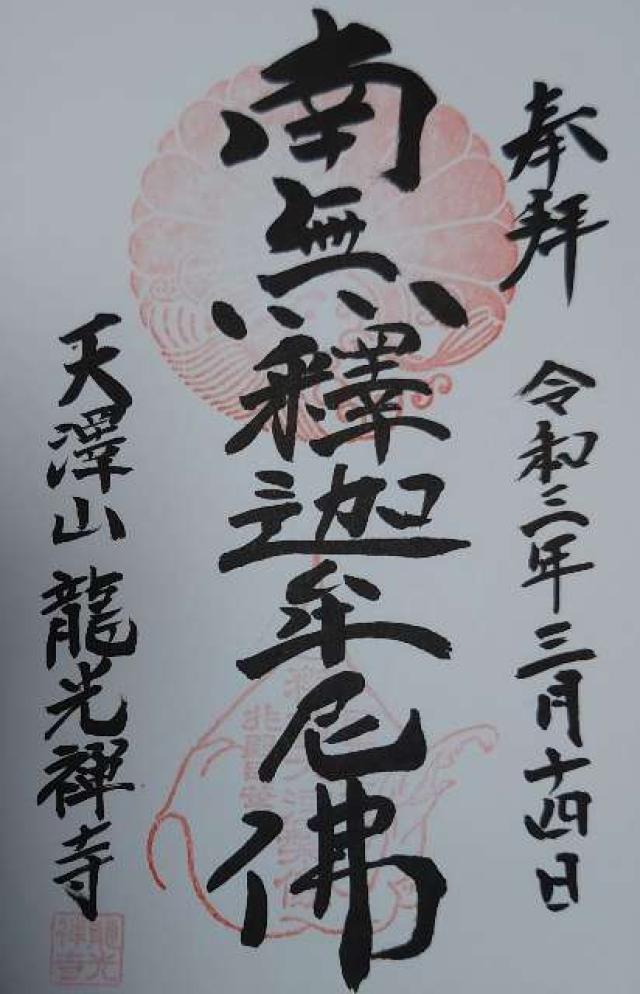 奉拝
令和三年三月十四日
南無釋迦牟尼佛
天澤山 龍光禅寺
龍光
禅寺